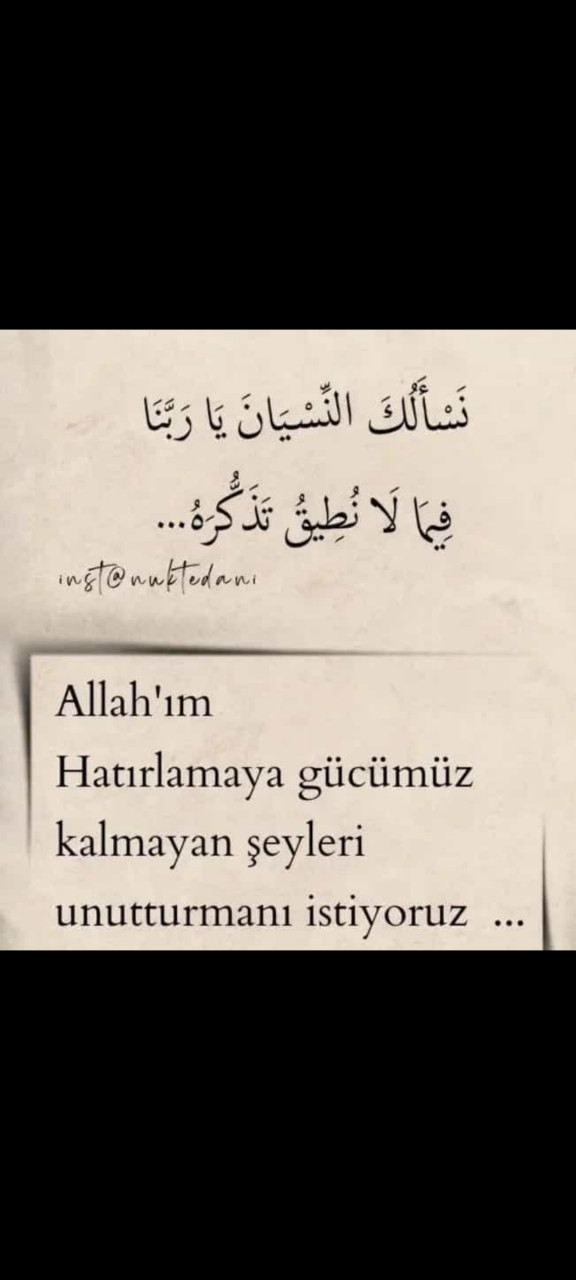 نَسْأَلُكَ النِّسْيَانَ يَا رَبَّنَا
فِيمَا لَا نُطِيقُ تَذَكُّرَهُ...
inst@nuktedani
Allah'ım
Hatırlamaya gücümüz
kalmayan şeyleri
unutturmanı istiyoruz ...